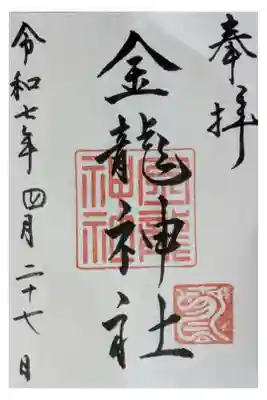 奉拝
金龍神社
令和七年四月二十七日
金龍神社